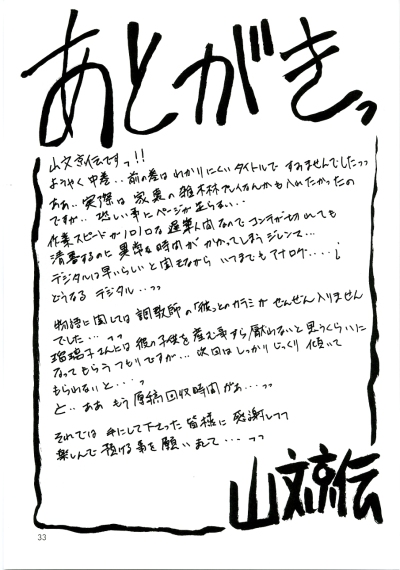 あとがきっ
山文京伝ですっ!!
ようやく中巻‥前の巻はわかりにくいタイトルですみませんでしたっっ
ああ‥実際は家裏の雑木林プレイなんかも入れたかったの
ですが‥恐しい事にページが足らない‥
作業スピードがノロノロな遅筆人間なのでコンテが切れても
清書するのに異常な時間がかかってしまうジレンマ…
デジタルは早いらしいと聞きながらいつまでもアナログ‥‥¡
どうなるデジタル‥っっ
物語に関しては調教師の「彼」とのカラミがぜんぜん入りません
でした…っっ
瑠璃子さんには彼の子供を産む事すら厭わないと思うくらいに
なってもらうつもりですが…次回はしっかりじっくり傾いて
もらわないと・・・っ
と‥ああもう原稿回収時間がぁ…っっ
それでは手にして下さった皆様に感謝しつつ
楽しんで頂ける事を願いまして…っっ
山文京伝
33